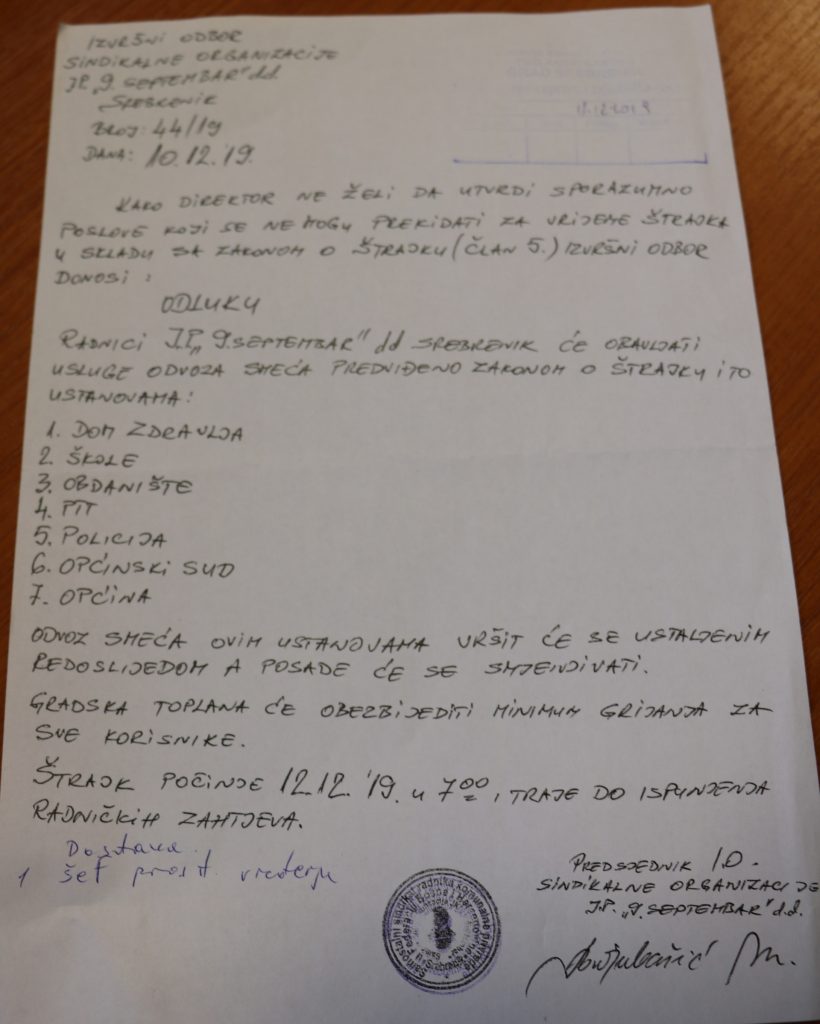 IZVRŠNI ODBOR
SINDIKALNE ORGANIZACIJE
J.P. „9. SEPTEMBAR" d.d.
SREBRENIK
BROJ: 44/19
DANA: 10.12.'19.
11.12.2019
KAKO DIREKTOR NE ŽELI DA UTVRDI SPORAZUMNO
POSLOVE KOJI SE NE MOGU PREKIDATI ZA VRIJEME ŠTRAJKA
U SKLADU SA ZAKONOM O ŠTRAJKU (ČLAN 5.) IZVRŠNI ODBOR
DONOSI:
ODLUKU
RADNICI J.P. „9. SEPTEMBAR" dd SREBRENIK ĆE OBAVLJATI
USLUGE ODVOZA SMEĆA PREDVIĐENO ZAKONOM O ŠTRAJKU I TO
USTANOVAMA:
1. DOM ZDRAVLJA
2. ŠKOLE
3. OBDANIŠTE
4. PTT
5. POLICIJA
6. OPĆINSKI SUD
7. OPĆINA
ODVOZ SMEĆA OVIM USTANOVAMA VRŠIT ĆE SE USTALJENIM
REDOSLIJEDOM A POSADE ĆE SE SMJENJIVATI.
GRADSKA TOPLANA ĆE OBEZBIJEDITI MINIMUM GRIJANJA ZA
SVE KORISNIKE.
ŠTRAJK POČINJE 12.12.'19. u 7⁰⁰, TRAJE DO ISPUNJENJA
RADNIČKIH ZAHTJEVA.
Dostava
1 šef
PREDSJEDNIK I.O.
SINDIKALNE ORGANIZACIJE
J.P. „9. SEPTEMBAR" d.d.
Samostalni sindikat radnika komunalne privrede
u Federaciji Bosne i Hercegovine